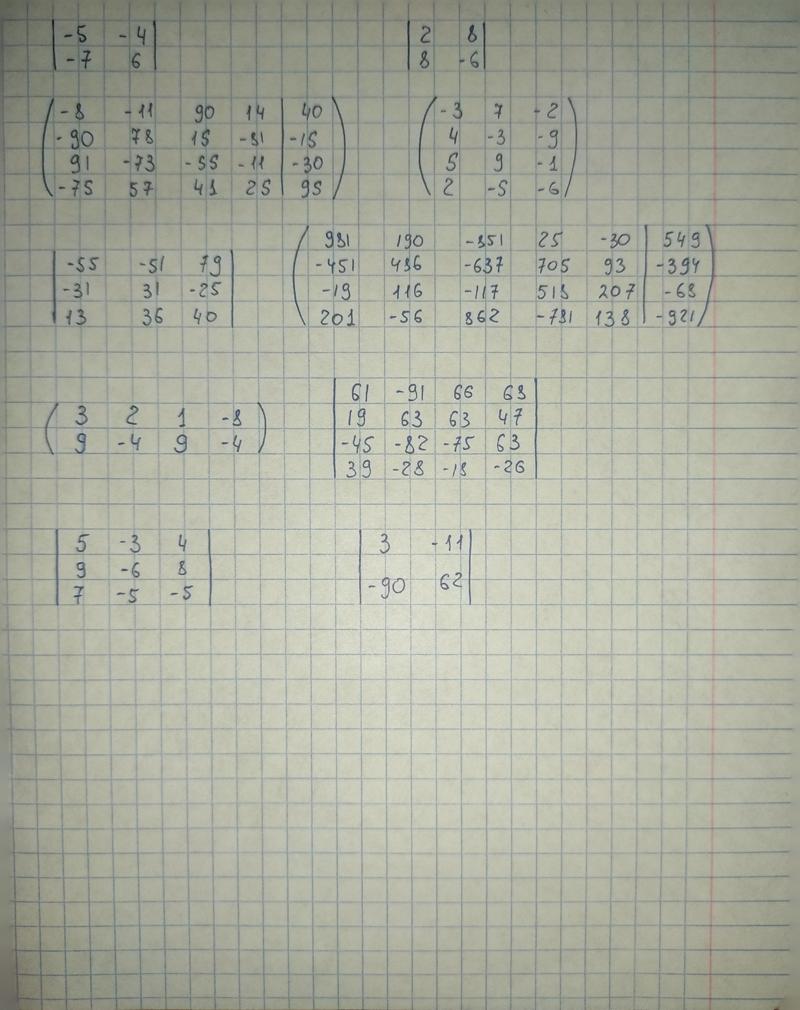 | -5 -4 |
| -7 6 |
| 2 8 |
| 8 -6 |
( -8 -11 90 14 | 40 )
( -90 78 15 -81 | -15 )
( 91 -73 -55 -11 | -30 )
( -75 57 41 25 | 95 )
( -3 7 -2 )
( 4 -3 -9 )
( 5 9 -1 )
( 2 -5 -6 )
| -55 -51 79 |
| -31 31 -25 |
| 13 36 40 |
( 981 190 -851 25 -30 | 549 )
( -451 486 -637 705 93 | -394 )
( -19 116 -117 518 207 | -68 )
( 201 -56 862 -781 138 | -921 )
( 3 2 1 -8 )
( 9 -4 9 -4 )
| 61 -91 66 68 |
| 19 63 63 47 |
| -45 -82 -75 63 |
| 39 -28 -18 -26 |
| 5 -3 4 |
| 9 -6 8 |
| 7 -5 -5 |
| 3 -11 |
| -90 62 |